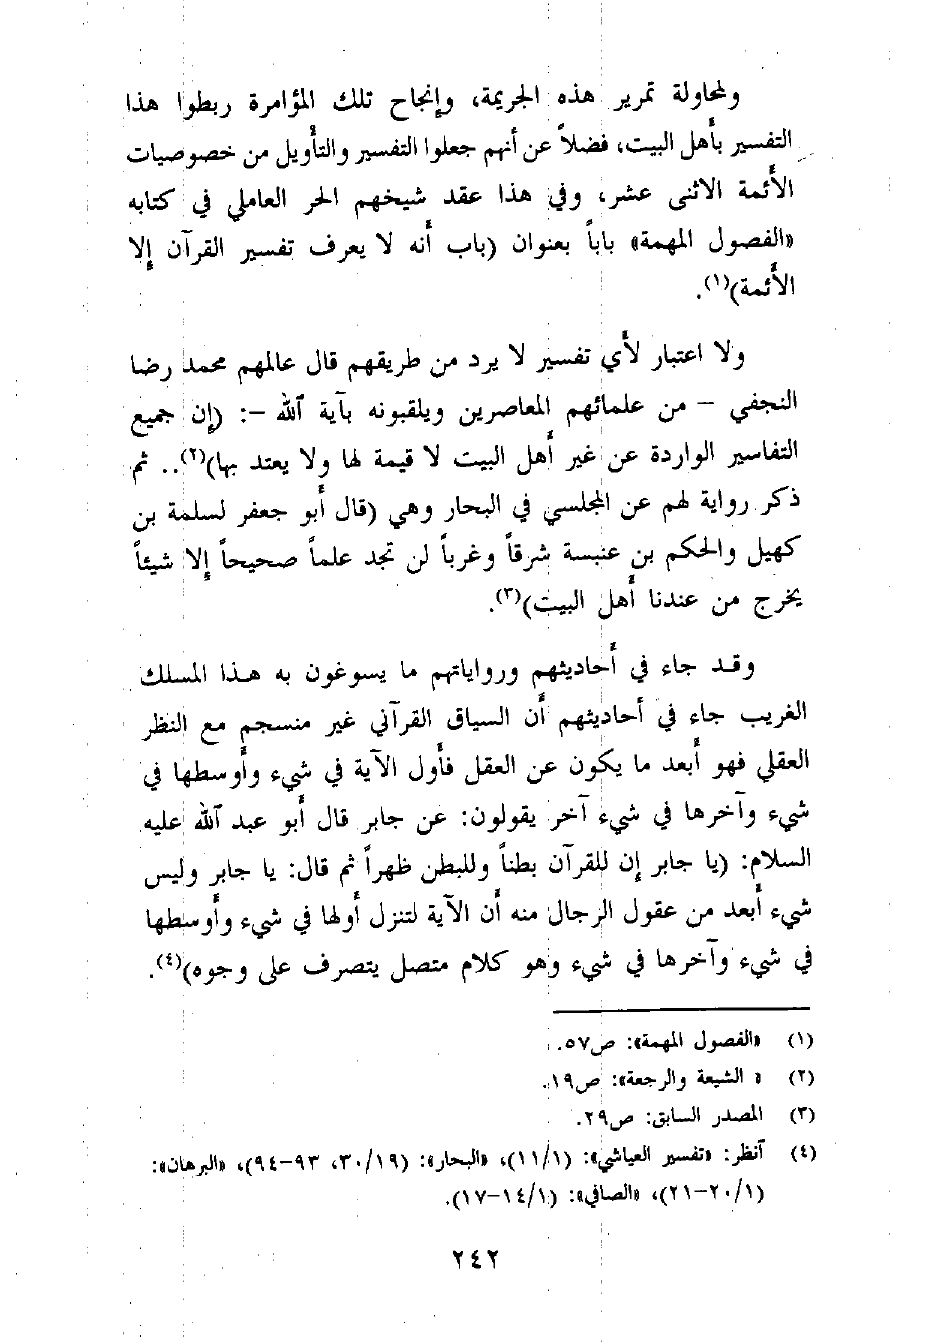 ولمحاولة تمرير هذه الجريمة، وإنجاح تلك المؤامرة ربطوا هذا
التفسير بأهل البيت، فضلاً عن أنهم جعلوا التفسير والتأويل من خصوصيات
الأئمة الاثنى عشر، وفي هذا عقد شيخهم الحر العاملي في كتابه
«الفصول المهمة» باباً بعنوان (باب أنه لا يعرف تفسير القرآن إلا
الأئمة)(١).
ولا اعتبار لأي تفسير لا يرد من طريقهم قال عالمهم محمد رضا
النجفي – من علمائهم المعاصرين ويلقبونه بآية الله –: (إن جميع
التفاسير الواردة عن غير أهل البيت لا قيمة لها ولا يعتد بها)(٢).. ثم
ذكر رواية لهم عن المجلسي في البحار وهي (قال أبو جعفر لسلمة بن
كهيل والحكم بن عنبسة شرقاً وغرباً لن تجد علماً صحيحاً إلا شيئاً
يخرج من عندنا أهل البيت)(٣).
وقد جاء في أحاديثهم ورواياتهم ما يسوغون به هذا المسلك
الغريب جاء في أحاديثهم أن السياق القرآني غير منسجم مع النظر
العقلي فهو أبعد ما يكون عن العقل فأول الآية في شيء وأوسطها في
شيء وآخرها في شيء آخر يقولون: عن جابر قال أبو عبد الله عليه
السلام: (يا جابر إن للقرآن بطناً وللبطن ظهراً ثم قال: يا جابر وليس
شيء أبعد من عقول الرجال منه أن الآية لتنزل أولها في شيء وأوسطها
في شيء وآخرها في شيء وهو كلام متصل يتصرف على وجوه)(٤).
(١) «الفصول المهمة»: ص٥٧.
(٢) « الشيعة والرجعة»: ص١٩.
(٣) المصدر السابق: ص٢٩.
(٤) أنظر: «تفسير العياشي»: (١١/١)، «البحار»: (٣٠/١٩، ٩٣–٩٤)، «البرهان»:
(٢٠/١–٢١)، «الصافي»: (١٤/١–١٧).
٢٤٢